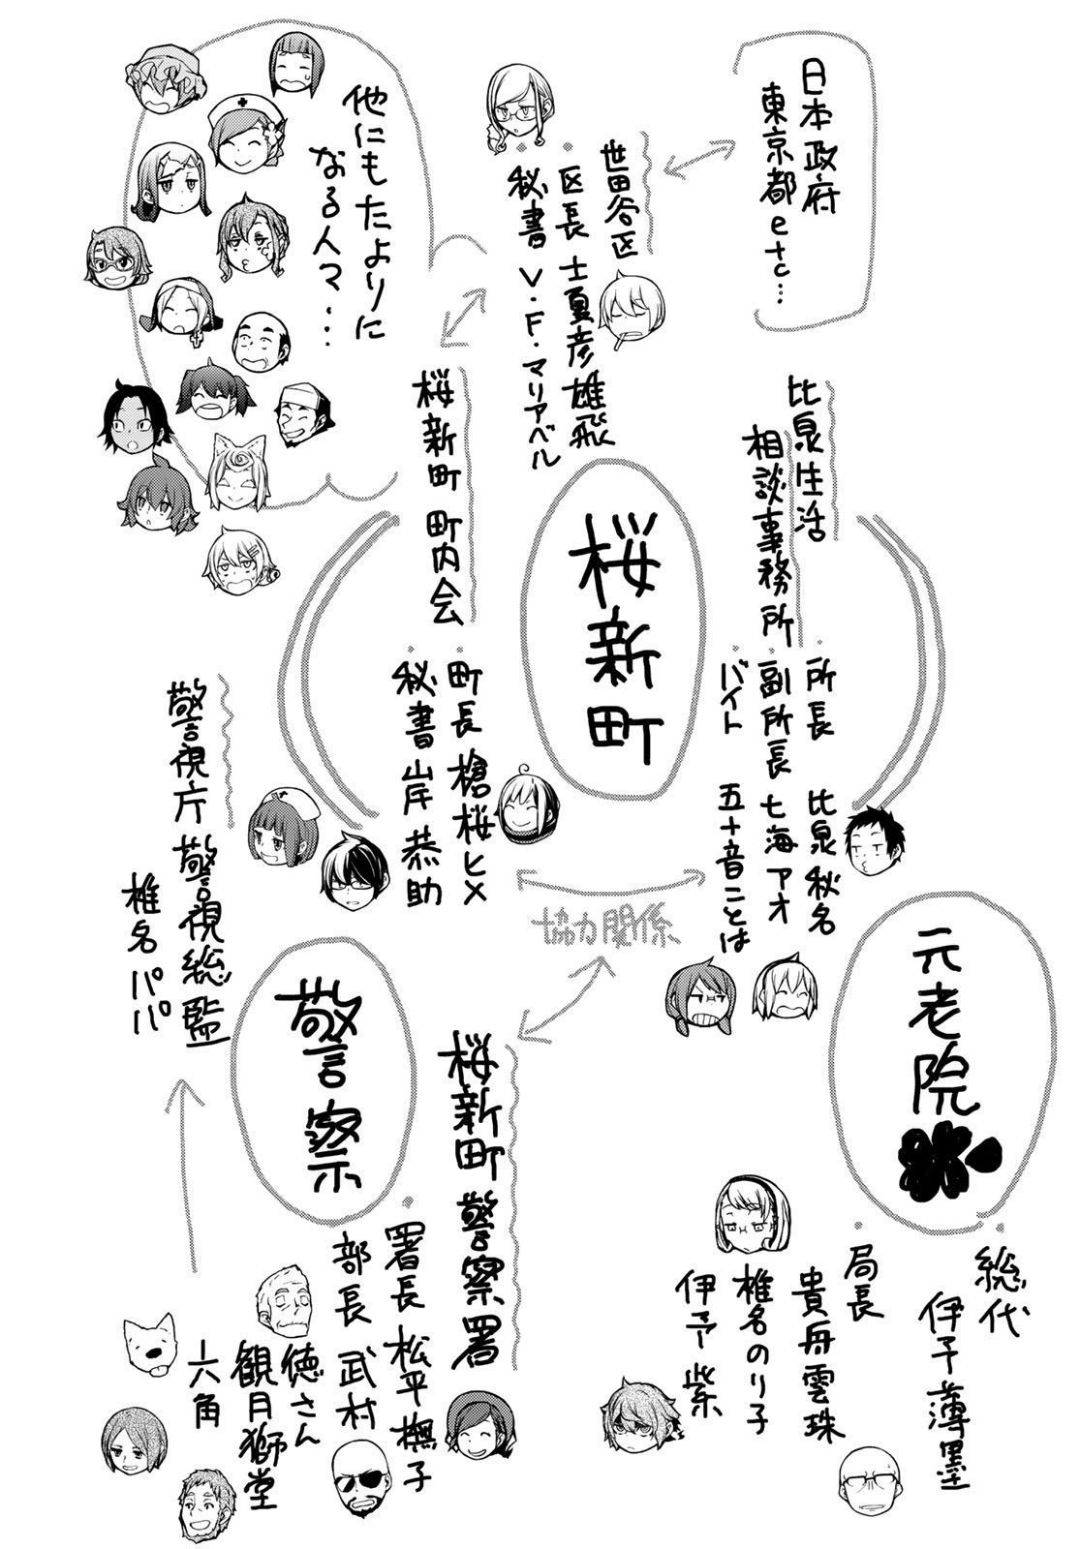 日本政府
東京都etc…
世田谷区
区長 士夏彦雄飛
秘書 V・F・マリアベル
他にもたよりに
なる人マ・・・
桜新町 町内会
町長 槍桜ヒメ
秘書 岸 恭助
桜新町
比泉生活
相談事務所
所長 比泉秋名
副所長 七海アオ
バイト 五十音ことは
協力関係
警視庁 警視総監
椎名パパ
警察
桜新町 警察署
署長 松平撫子
部長 武村
徳さん
観月獅堂
六角
元老院
総代
伊予薄墨
局長
貴舟雲珠
椎名のり子
伊予 紫